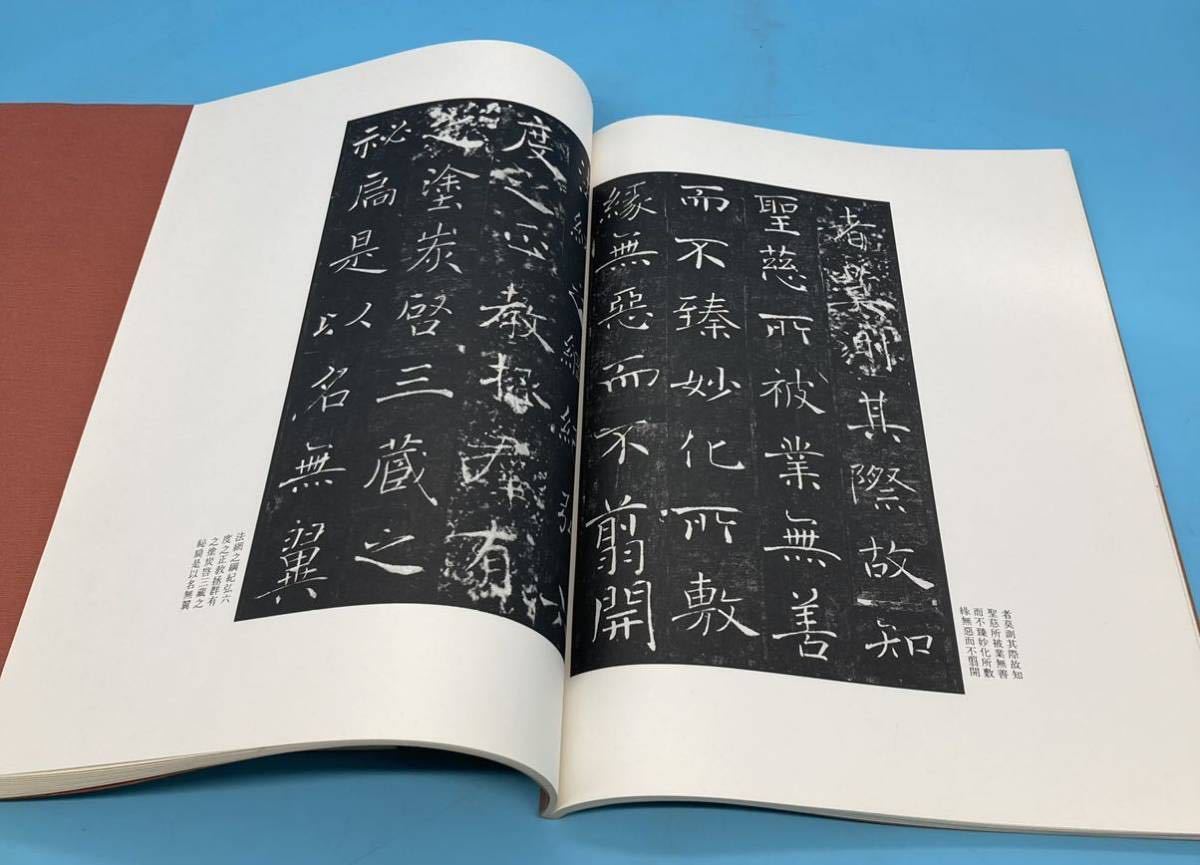 者莫測其際故知
聖慈所被業無善
而不臻妙化所敷
緣無惡而不翦開
者莫測其際故知
聖慈所被業無善
而不臻妙化所敷
緣無惡而不翦開
網之綱紀弘
度之正教拯群有
之塗炭啓三藏之
祕扃是以名無翼
法網之綱紀弘六
度之正教拯群有
之塗炭啓三藏之
祕扃是以名無翼